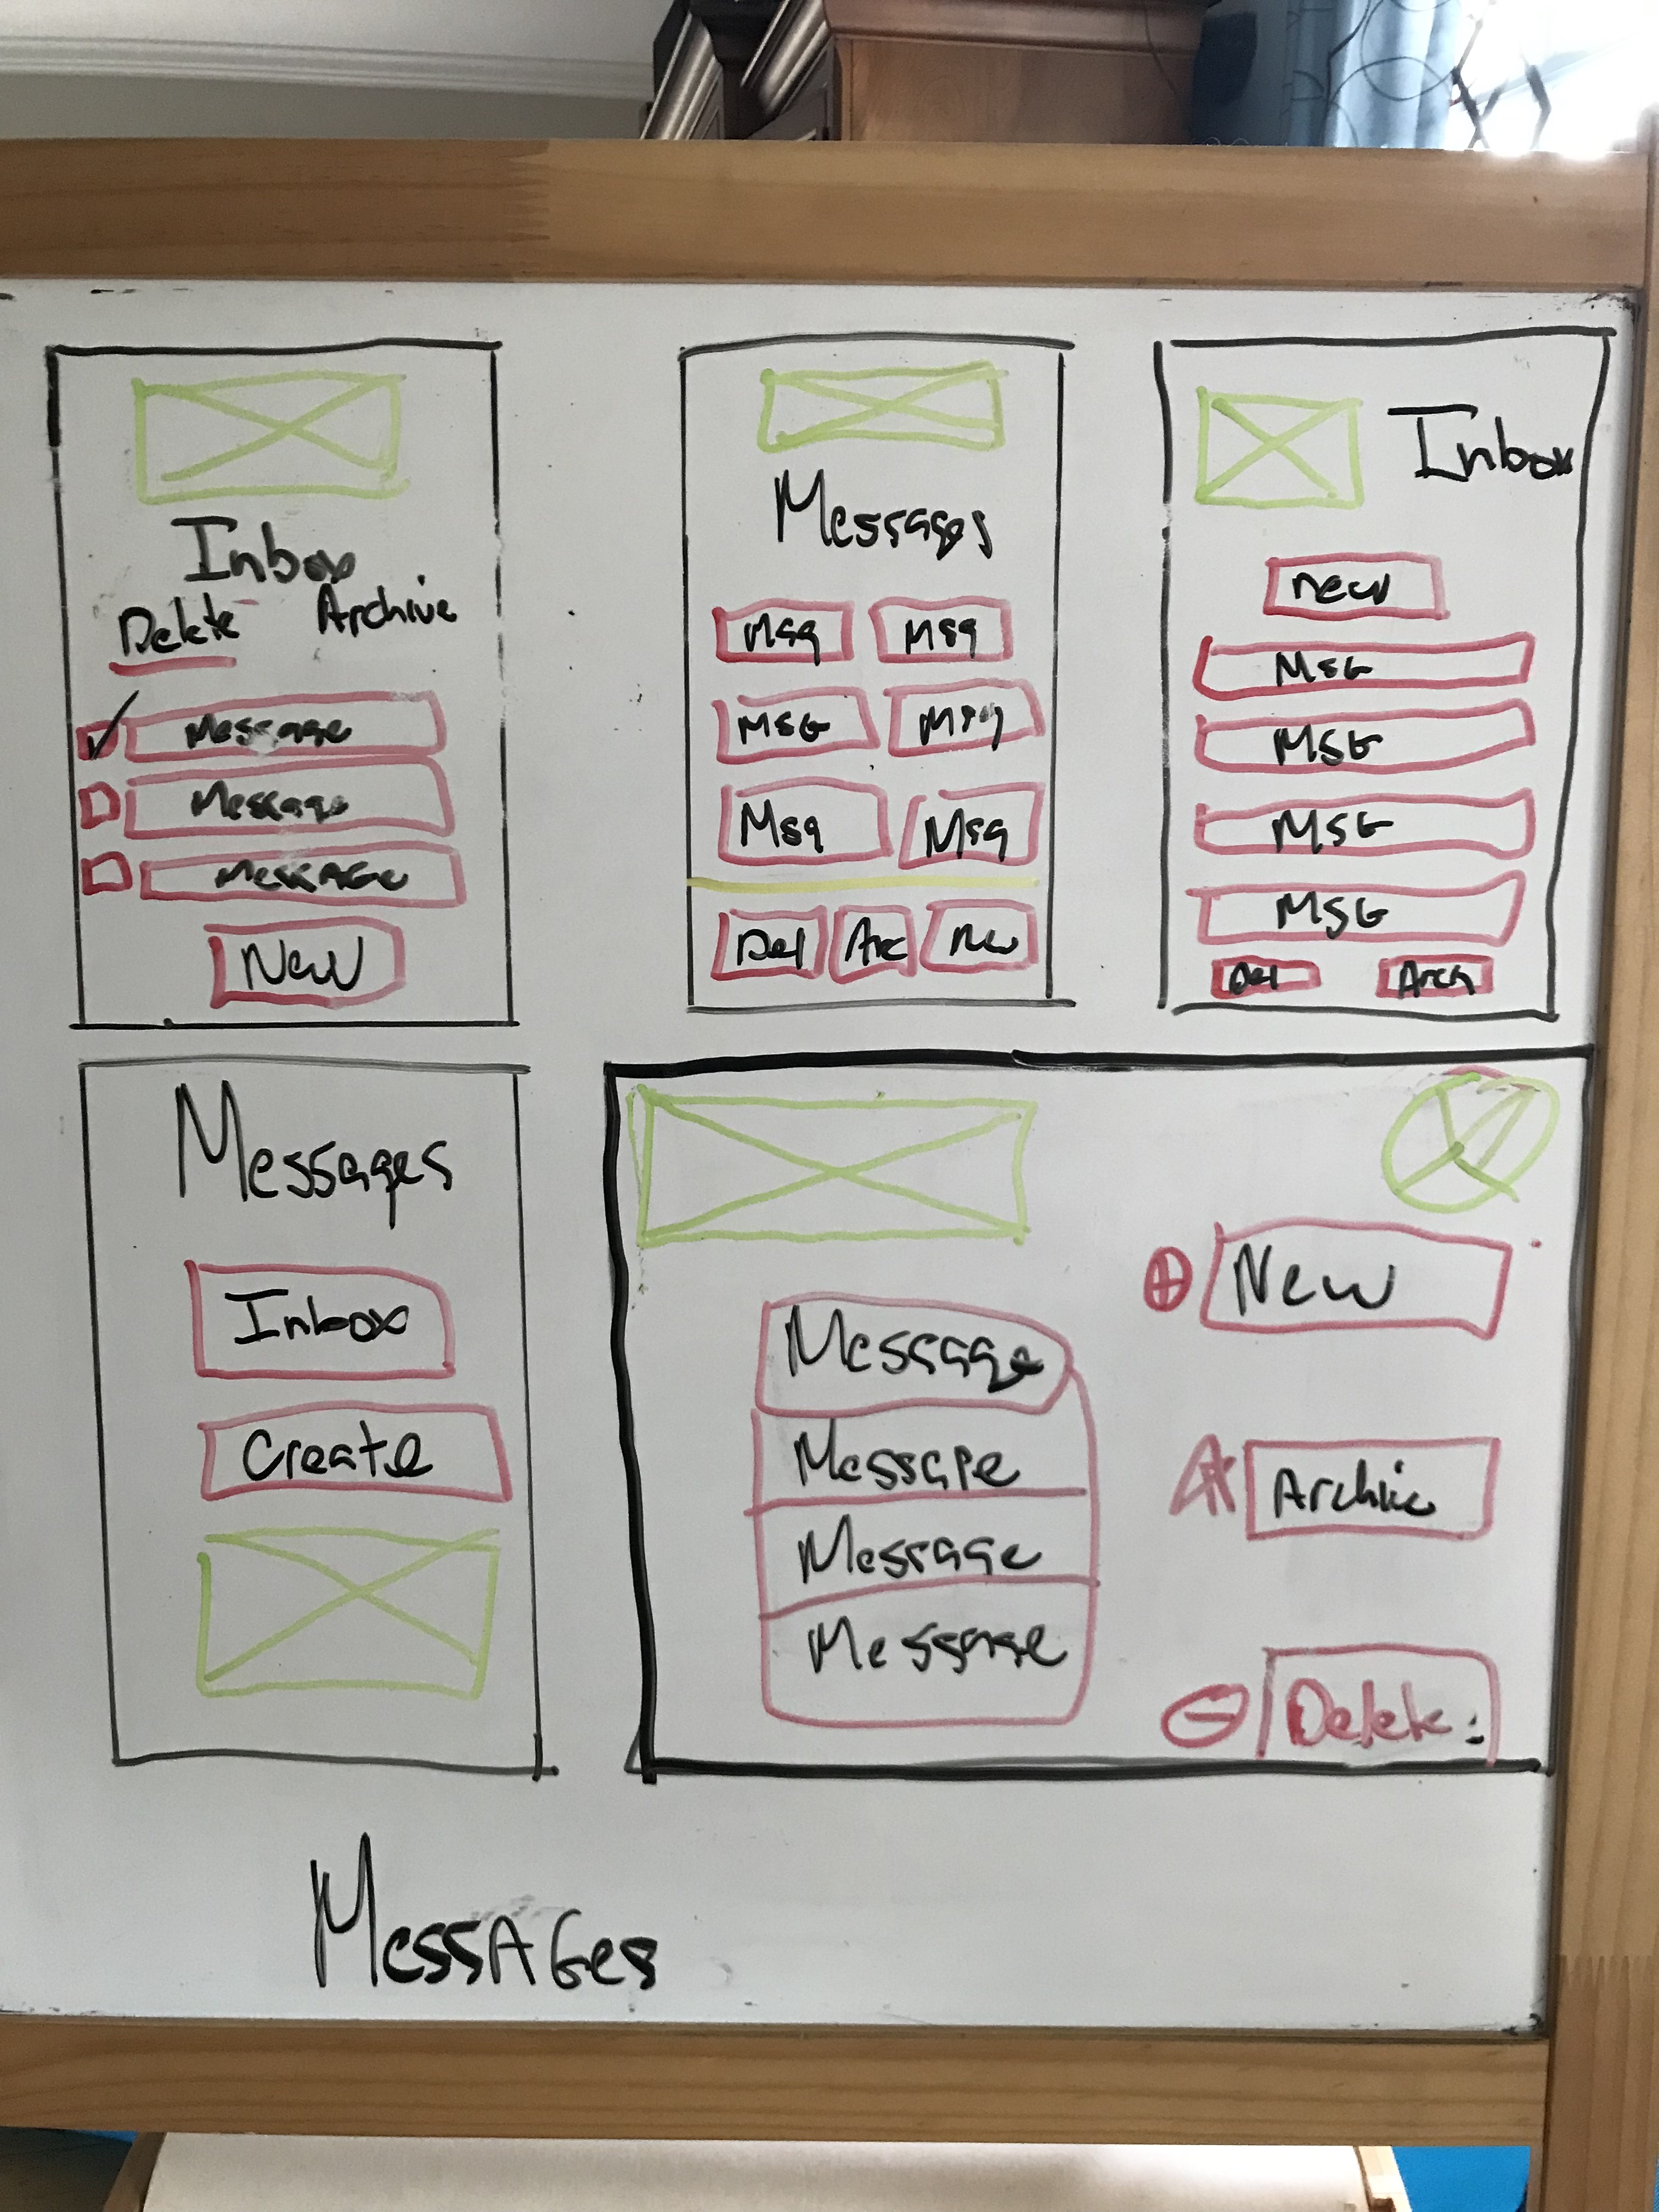 Inbox
Delete Archive
Message
Message
Message
New
Messages
Msg Msg
MSG Msg
Msg Msg
Del Arc New
Inbox
new
MSG
MSG
MSG
MSG
Del Arch
Messages
Inbox
Create
Message
Message
Message
Message
New
Archive
Delete
MessAGes